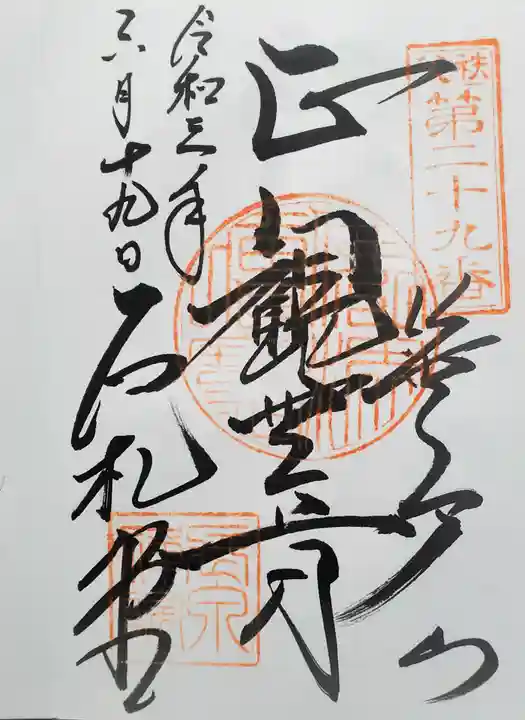 秩父
第二十九番
笹戸山
正観世音
令和三年
六月十九日
石札堂